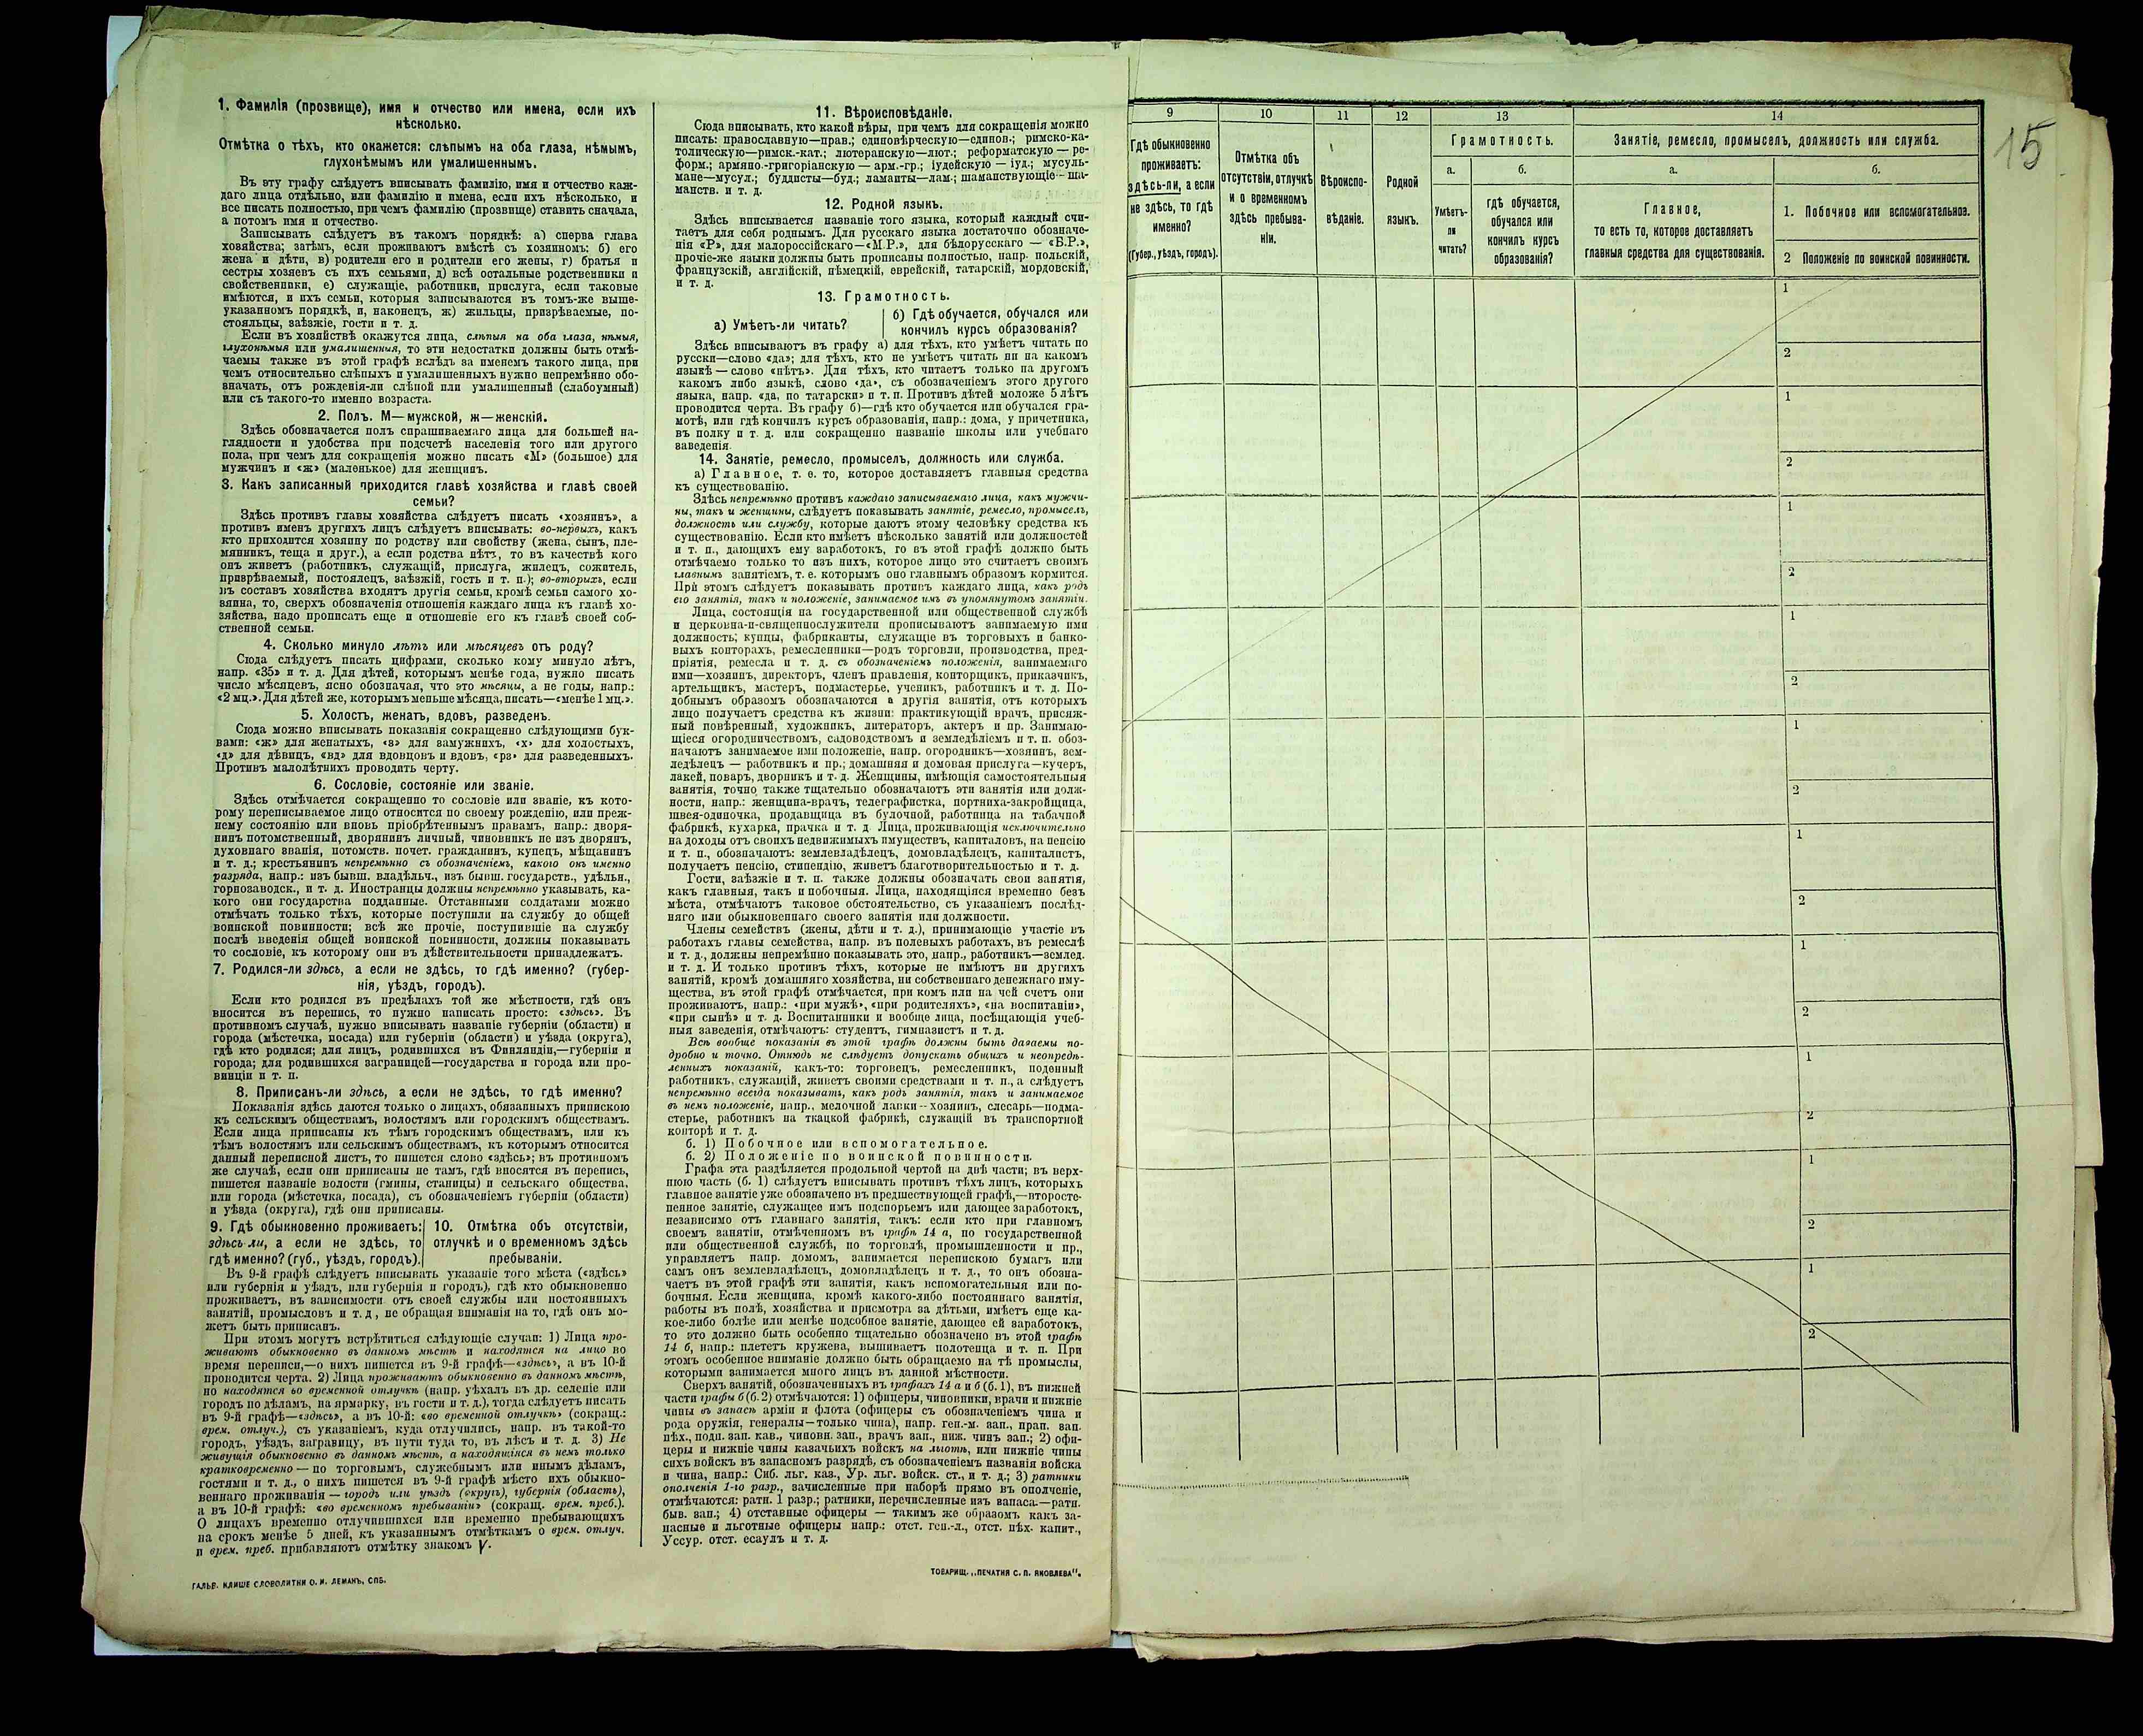 1. Фамилія (прозвище), имя и отчество или имена, если ихъ
нѣсколько.
Отмѣтка о тѣхъ, кто окажется: слѣпымъ на оба глаза, нѣмымъ,
глухонѣмымъ или умалишеннымъ.
Въ эту графу слѣдуетъ вписывать фамилію, имя и отчество каж-
даго лица отдѣльно, или фамилію и имена, если ихъ нѣсколько, и
все писать полностью, при чемъ фамилію (прозвище) ставить сначала,
а потомъ имя и отчество.
Записывать слѣдуетъ въ такомъ порядкѣ: а) сперва глава
хозяйства; затѣмъ, если проживаютъ вмѣстѣ съ хозяиномъ: б) его
жена и дѣти, в) родители его и родители его жены, г) братья и
сестры хозяевъ съ ихъ семьями, д) всѣ остальные родственники и
свойственники, е) служащіе, работники, прислуга, если таковые
имѣются, и ихъ семьи, которыя записываются въ томъ-же выше-
указанномъ порядкѣ, и, наконецъ, ж) жильцы, призрѣваемые, по-
стояльцы, заѣзжіе, гости и т. д.
Если въ хозяйствѣ окажутся лица, слѣпыя на оба глаза, нѣмыя,
глухонѣмыя или умалишенныя, то эти недостатки должны быть отмѣ-
чаемы также въ этой графѣ вслѣдъ за именемъ такого лица, при
чемъ относительно слѣпыхъ и умалишенныхъ нужно непремѣнно обо-
значать, отъ рожденія-ли слѣпой или умалишенный (слабоумный)
или съ такого-то именно возраста.
2. Полъ. М—мужской, ж—женскій.
Здѣсь обозначается полъ спрашиваемаго лица для большей на-
глядности и удобства при подсчетѣ населенія того или другого
пола, при чемъ для сокращенія можно писать «М» (большое) для
мужчинъ и «ж» (маленькое) для женщинъ.
3. Какъ записанный приходится главѣ хозяйства и главѣ своей
семьи?
Здѣсь противъ главы хозяйства слѣдуетъ писать «хозяинъ», а
противъ именъ другихъ лицъ слѣдуетъ вписывать: во-первыхъ, какъ
кто приходится хозяину по родству или свойству (жена, сынъ, пле-
мянникъ, теща и друг.), а если родства нѣтъ, то въ качествѣ кого
онъ живетъ (работникъ, служащій, прислуга, жилецъ, сожитель,
призрѣваемый, постоялецъ, заѣзжій, гость и т. п.); во-вторыхъ, если
въ составъ хозяйства входятъ другія семьи, кромѣ семьи самого хо-
зяина, то, сверхъ обозначенія отношенія каждаго лица къ главѣ хо-
зяйства, надо прописать еще и отношеніе его къ главѣ своей соб-
ственной семьи.
4. Сколько минуло лѣтъ или мѣсяцевъ отъ роду?
Сюда слѣдуетъ писать цифрами, сколько кому минуло лѣтъ,
напр. «35» и т. д. Для дѣтей, которымъ менѣе года, нужно писать
число мѣсяцевъ, ясно обозначая, что это мѣсяцы, а не годы, напр.:
«2 мц.». Для дѣтей же, которымъ меньше мѣсяца, писать—«менѣе 1 мц.».
5. Холостъ, женатъ, вдовъ, разведенъ.
Сюда можно вписывать показанія сокращенно слѣдующими бук-
вами: «ж» для женатыхъ, «з» для замужнихъ, «х» для холостыхъ,
«д» для дѣвицъ, «вд» для вдовцовъ и вдовъ, «рз» для разведенныхъ.
Противъ малолѣтнихъ проводить черту.
6. Сословіе, состояніе или званіе.
Здѣсь отмѣчается сокращенно то сословіе или званіе, къ кото-
рому переписываемое лицо относится по своему рожденію, или преж-
нему состоянію или вновь пріобрѣтеннымъ правамъ, напр.: дворя-
нинъ потомственный, дворянинъ личный, чиновникъ не изъ дворянъ,
духовнаго званія, потомств. почет. гражданинъ, купецъ, мѣщанинъ
и т. д.; крестьянинъ непремѣнно съ обозначеніемъ, какого онъ именно
разряда, напр.: изъ бывш. владѣльч., изъ бывш. государств., удѣльн.,
горнозаводск., и т. д. Иностранцы должны непремѣнно указывать, ка-
кого они государства подданные. Отставными солдатами можно
отмѣчать только тѣхъ, которые поступили на службу до общей
воинской повинности; всѣ же прочіе, поступившіе на службу
послѣ введенія общей воинской повинности, должны показывать
то сословіе, къ которому они въ дѣйствительности принадлежатъ.
7. Родился-ли здѣсь, а если не здѣсь, то гдѣ именно? (губер-
нія, уѣздъ, городъ).
Если кто родился въ предѣлахъ той же мѣстности, гдѣ онъ
вносится въ перепись, то нужно написать просто: «здѣсь». Въ
противномъ случаѣ, нужно вписывать названіе губерніи (области) и
города (мѣстечка, посада) или губерніи (области) и уѣзда (округа),
гдѣ кто родился; для лицъ, родившихся въ Финляндіи,—губерніи и
города; для родившихся заграницей—государства и города или про-
винціи и т. п.
8. Приписанъ-ли здѣсь, а если не здѣсь, то гдѣ именно?
Показанія здѣсь даются только о лицахъ, обязанныхъ припискою
къ сельскимъ обществамъ, волостямъ или городскимъ обществамъ.
Если лица приписаны къ тѣмъ городскимъ обществамъ, или къ
тѣмъ волостямъ или сельскимъ обществамъ, къ которымъ относится
данный переписной листъ, то пишется слово «здѣсь»; въ противномъ
же случаѣ, если они приписаны не тамъ, гдѣ вносятся въ перепись,
пишется названіе волости (гмины, станицы) и сельскаго общества,
или города (мѣстечка, посада), съ обозначеніемъ губерніи (области)
и уѣзда (округа), гдѣ они приписаны.
9. Гдѣ обыкновенно проживаетъ:
здѣсь ли, а если не здѣсь, то
гдѣ именно? (губ., уѣздъ, городъ).
10. Отмѣтка объ отсутствіи,
отлучкѣ и о временномъ здѣсь
пребываніи.
Въ 9-й графѣ слѣдуетъ вписывать указаніе того мѣста («здѣсь»
или губернія и уѣздъ, или губернія и городъ), гдѣ кто обыкновенно
проживаетъ, въ зависимости отъ своей службы или постоянныхъ
занятій, промысловъ и т. д., не обращая вниманія на то, гдѣ онъ мо-
жетъ быть приписанъ.
При этомъ могутъ встрѣтиться слѣдующіе случаи: 1) Лица про-
живаютъ обыкновенно въ данномъ мѣстѣ и находятся на лицо во
время переписи,—о нихъ пишется въ 9-й графѣ—«здѣсь», а въ 10-й
проводится черта. 2) Лица проживаютъ обыкновенно въ данномъ мѣстѣ,
но находятся во временной отлучкѣ (напр. уѣхалъ въ др. селеніе или
городъ по дѣламъ, на ярмарку, въ гости и т. д.), тогда слѣдуетъ писать
въ 9-й графѣ—«здѣсь», а въ 10-й: «во временной отлучкѣ» (сокращ.:
врем. отлуч.), съ указаніемъ, куда отлучились, напр. въ такой-то
городъ, уѣздъ, заграницу, въ пути туда то, въ лѣсъ и т. д. 3) Не
живущія обыкновенно въ данномъ мѣстѣ, а находящіяся въ немъ только
кратковременно — по торговымъ, служебнымъ или инымъ дѣламъ,
гостями и т. д., о нихъ пишется въ 9-й графѣ мѣсто ихъ обыкно-
веннаго проживанія — городъ или уѣздъ (округъ), губернія (область),
а въ 10-й графѣ: «во временномъ пребываніи» (сокращ. врем. преб.).
О лицахъ временно отлучившихся или временно пребывающихъ
на срокъ менѣе 5 дней, къ указаннымъ отмѣткамъ о врем. отлуч.
и врем. преб. прибавляютъ отмѣтку знакомъ V.
ГАЛЬВ. КЛИШЕ СЛОВОЛИТНИ О. И. ЛЕМАНЪ, СПБ.
11. Вѣроисповѣданіе.
Сюда вписывать, кто какой вѣры, при чемъ для сокращенія можно
писать: православную—прав.; единовѣрческую—единов.; римско-ка-
толическую—римск.-кат.; лютеранскую—лют.; реформатскую — ре-
форм.; армяно-григоріанскую — арм.-гр.; іудейскую — іуд.; мусуль-
мане—мусул.; буддисты—буд.; ламаиты—лам.; шаманствующіе—ша-
манств. и т. д.
12. Родной языкъ.
Здѣсь вписывается названіе того языка, который каждый счи-
таетъ для себя роднымъ. Для русскаго языка достаточно обозначе-
нія «Р», для малороссійскаго—«М.Р.», для бѣлорусскаго — «Б.Р.»,
прочіе-же языки должны быть прописаны полностью, напр. польскій,
французскій, англійскій, нѣмецкій, еврейскій, татарскій, мордовскій,
и т. д.
13. Грамотность.
а) Умѣетъ-ли читать?
б) Гдѣ обучается, обучался или
кончилъ курсъ образованія?
Здѣсь вписываютъ въ графу а) для тѣхъ, кто умѣетъ читать по
русски—слово «да»; для тѣхъ, кто не умѣетъ читать ни на какомъ
языкѣ — слово «нѣтъ». Для тѣхъ, кто читаетъ только на другомъ
какомъ либо языкѣ, слово «да», съ обозначеніемъ этого другого
языка, напр. «да, по татарски» и т. п. Противъ дѣтей моложе 5 лѣтъ
проводится черта. Въ графу б)—гдѣ кто обучается или обучался гра-
мотѣ, или гдѣ кончилъ курсъ образованія, напр.: дома, у причетника,
въ полку и т. д. или сокращенно названіе школы или учебнаго
заведенія.
14. Занятіе, ремесло, промыселъ, должность или служба.
а) Главное, т. е. то, которое доставляетъ главныя средства
къ существованію.
Здѣсь непремѣнно противъ каждаго записываемаго лица, какъ мужчи-
ны, такъ и женщины, слѣдуетъ показывать занятіе, ремесло, промыселъ,
должность или службу, которые даютъ этому человѣку средства къ
существованію. Если кто имѣетъ нѣсколько занятій или должностей
и т. п., дающихъ ему заработокъ, то въ этой графѣ должно быть
отмѣчаемо только то изъ нихъ, которое лицо это считаетъ своимъ
главнымъ занятіемъ, т. е. которымъ оно главнымъ образомъ кормится.
При этомъ слѣдуетъ показывать противъ каждаго лица, какъ родъ
его занятія, такъ и положеніе, занимаемое имъ въ упомянутомъ занятіи.
Лица, состоящія на государственной или общественной службѣ
и церковно-и-священнослужители прописываютъ занимаемую ими
должность; купцы, фабриканты, служащіе въ торговыхъ и банко-
выхъ конторахъ, ремесленники—родъ торговли, производства, пред-
пріятія, ремесла и т. д. съ обозначеніемъ положенія, занимаемаго
ими—хозяинъ, директоръ, членъ правленія, конторщикъ, приказчикъ,
артельщикъ, мастеръ, подмастерье, ученикъ, работникъ и т. д. По-
добнымъ образомъ обозначаются и другія занятія, отъ которыхъ
лицо получаетъ средства къ жизни: практикующій врачъ, присяж-
ный повѣренный, художникъ, литераторъ, актеръ и пр. Занимаю-
щіеся огородничествомъ, садоводствомъ и земледѣліемъ и т. п. обоз-
начаютъ занимаемое ими положеніе, напр. огородникъ—хозяинъ, зем-
ледѣлецъ — работникъ и пр.; домашняя и домовая прислуга—кучеръ,
лакей, поваръ, дворникъ и т. д. Женщины, имѣющія самостоятельныя
занятія, точно также тщательно обозначаютъ эти занятія или долж-
ности, напр.: женщина-врачъ, телеграфистка, портниха-закройщица,
швея-одиночка, продавщица въ булочной, работница на табачной
фабрикѣ, кухарка, прачка и т. д. Лица, проживающія исключительно
на доходы отъ своихъ недвижимыхъ имуществъ, капиталовъ, на пенсію
и т. п., обозначаютъ: землевладѣлецъ, домовладѣлецъ, капиталистъ,
получаетъ пенсію, стипендію, живетъ благотворительностью и т. д.
Гости, заѣзжіе и т. п. также должны обозначать свои занятія,
какъ главныя, такъ и побочныя. Лица, находящіяся временно безъ
мѣста, отмѣчаютъ таковое обстоятельство, съ указаніемъ послѣд-
няго или обыкновеннаго своего занятія или должности.
Члены семействъ (жены, дѣти и т. д.), принимающіе участіе въ
работахъ главы семейства, напр. въ полевыхъ работахъ, въ ремеслѣ
и т. д., должны непремѣнно показывать это, напр., работникъ—землед.
и т. д. И только противъ тѣхъ, которые не имѣютъ ни другихъ
занятій, кромѣ домашняго хозяйства, ни собственнаго денежнаго иму-
щества, въ этой графѣ отмѣчается, при комъ или на чей счетъ они
проживаютъ, напр.: «при мужѣ», «при родителяхъ», «на воспитаніи»,
«при сынѣ» и т. д. Воспитанники и вообще лица, посѣщающія учеб-
ныя заведенія, отмѣчаютъ: студентъ, гимназистъ и т. д.
Всѣ вообще показанія въ этой графѣ должны быть даваемы по-
дробно и точно. Отнюдь не слѣдуетъ допускать общихъ и неопредѣ-
ленныхъ показаній, какъ-то: торговецъ, ремесленникъ, поденный
работникъ, служащій, живетъ своими средствами и т. п., а слѣдуетъ
непремѣнно всегда показывать, какъ родъ занятія, такъ и занимаемое
въ немъ положеніе, напр., мелочной лавки—хозяинъ, слесарь—подма-
стерье, работникъ на ткацкой фабрикѣ, служащій въ транспортной
конторѣ и т. д.
б. 1) Побочное или вспомогательное.
б. 2) Положеніе по воинской повинности.
Графа эта раздѣляется продольной чертой на двѣ части; въ верх-
нюю часть (б. 1) слѣдуетъ вписывать противъ тѣхъ лицъ, которыхъ
главное занятіе уже обозначено въ предшествующей графѣ,—второсте-
пенное занятіе, служащее имъ подспорьемъ или дающее заработокъ,
независимо отъ главнаго занятія, такъ: если кто при главномъ
своемъ занятіи, отмѣченномъ въ графѣ 14 а, по государственной
или общественной службѣ, по торговлѣ, промышленности и пр.,
управляетъ напр. домомъ, занимается перепискою бумагъ или
самъ онъ землевладѣлецъ, домовладѣлецъ и т. д., то онъ обозна-
чаетъ въ этой графѣ эти занятія, какъ вспомогательныя или по-
бочныя. Если женщина, кромѣ какого-либо постояннаго занятія,
работы въ полѣ, хозяйства и присмотра за дѣтьми, имѣетъ еще ка-
кое-либо болѣе или менѣе подсобное занятіе, дающее ей заработокъ,
то это должно быть особенно тщательно обозначено въ этой графѣ
14 б, напр.: плететъ кружева, вышиваетъ полотенца и т. п. При
этомъ особенное вниманіе должно быть обращаемо на тѣ промыслы,
которыми занимается много лицъ въ данной мѣстности.
Сверхъ занятій, обозначенныхъ въ графахъ 14 а и б (б. 1), въ нижней
части графы б (б. 2) отмѣчаются: 1) офицеры, чиновники, врачи и нижніе
чины въ запасѣ арміи и флота (офицеры съ обозначеніемъ чина и
рода оружія, генералы—только чина), напр. ген.-м. зап., прап. зап.
пѣх., подп. зап. кав., чиновн. зап., врачъ зап., ниж. чинъ зап.; 2) офи-
церы и нижніе чины казачьихъ войскъ на льготѣ, или нижніе чины
сихъ войскъ въ запасномъ разрядѣ, съ обозначеніемъ названія войска
и чина, напр.: Сиб. льг. каз., Ур. льг. войск. ст., и т. д.; 3) ратники
ополченія 1-го разр., зачисленные при наборѣ прямо въ ополченіе,
отмѣчаются: ратн. 1 разр.; ратники, перечисленные изъ запаса—ратн.
быв. зап.; 4) отставные офицеры — такимъ же образомъ какъ за-
пасные и льготные офицеры напр.: отст. ген.-л., отст. пѣх. капит.,
Уссур. отст. есаулъ и т. д.
ТОВАРИЩ. „ПЕЧАТНЯ С. П. ЯКОВЛЕВА".
15
9
10
11
12
13
14
Гдѣ обыкновенно
проживаетъ:
здѣсь-ли, а если
не здѣсь, то гдѣ
именно?
(Губер., уѣздъ, городъ).
Отмѣтка объ
отсутствіи, отлучкѣ
и о временномъ
здѣсь пребыва-
ніи.
Вѣроиспо-
вѣданіе.
Родной
языкъ.
Грамотность.
а.
Умѣетъ-
ли
читать?
б.
гдѣ обучается,
обучался или
кончилъ курсъ
образованія?
Занятіе, ремесло, промыселъ, должность или служба.
а.
Главное,
то есть то, которое доставляетъ
главныя средства для существованія.
б.
1. Побочное или вспомогательное.
2 Положеніе по воинской повинности.
1
2
1
2
1
2
1
2
1
2
1
2
1
2
1
2
1
2
1
2